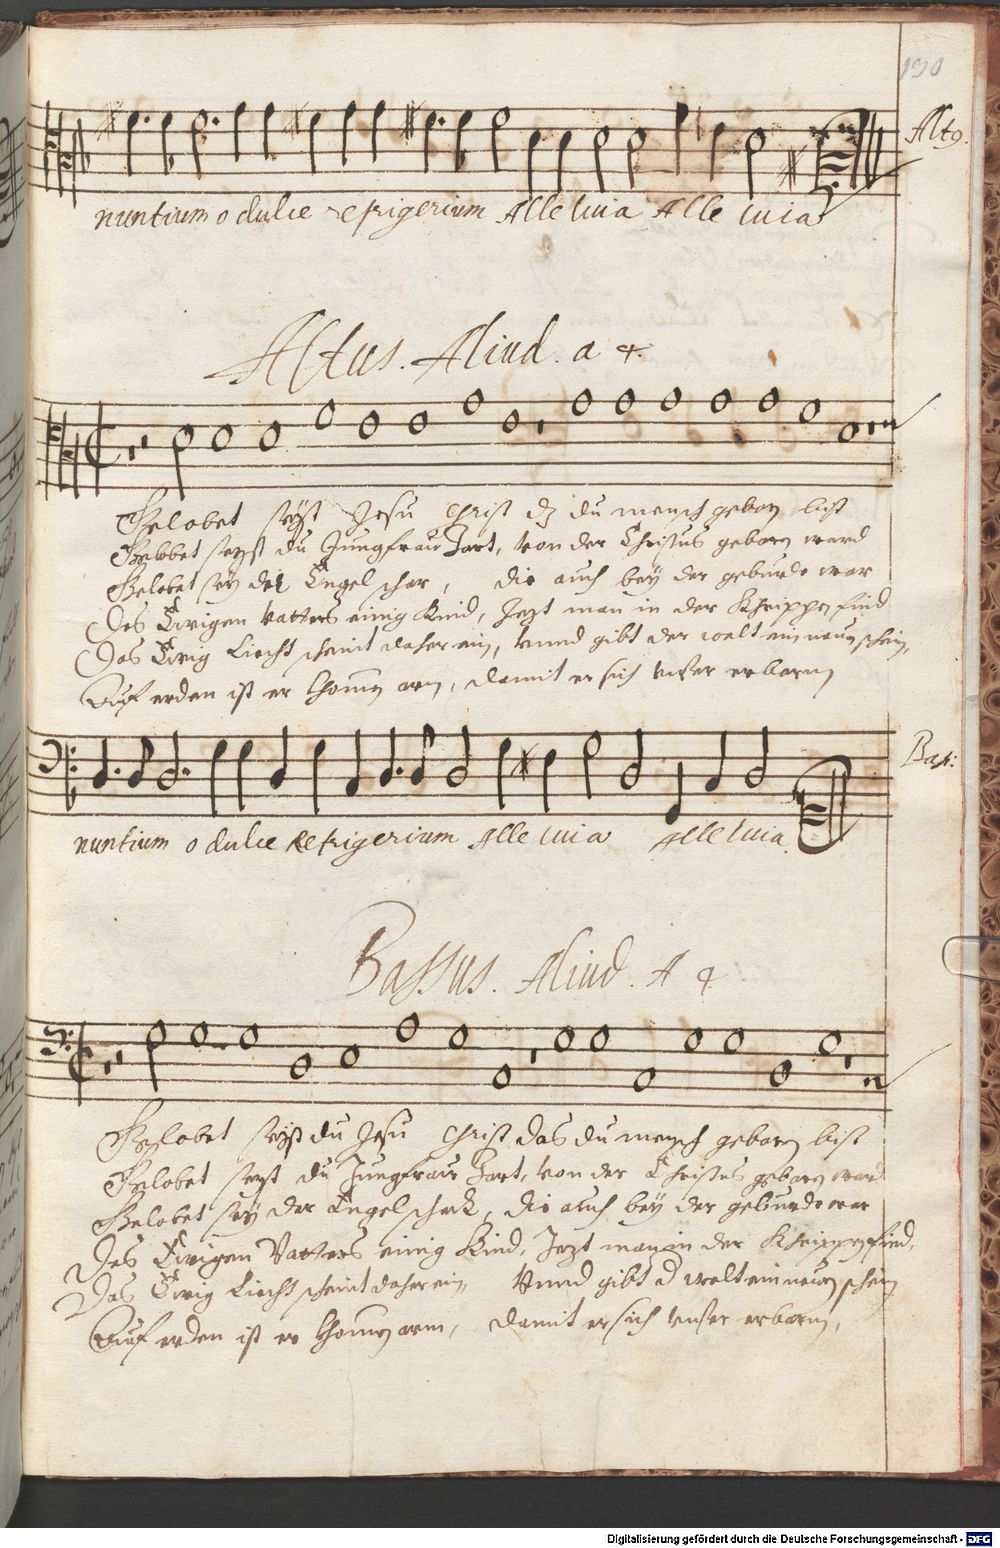 190
Alto.
nuntium o dulce refrigerium Alleluia Alle luia
Altus. Aliud. a 4.
Gelobet seyst Jesu Christ dz du mensch geborn bist
Gelobet seyst du Jungfraw Zart, von der Christus geborn ward
Gelobet sey der Engel schar, die auch bey der geburde war
Des Ewigen Vatters einig Kind, Jezt man in der Khrippen find
Das Ewig Liecht scheint daher ein, Vnnd gibt der welt ein neun schein,
Auf erden ist er khomen arm, damit er sich vnser erbarm
Bass:
nuntium o dulce Refrigerium Alle luia Alleluia.
Bassus. Aliud. A 4
Gelobet seyst du Jesu Christ das du mensch geborn bist
Gelobet seyst du Jungfraw Zart, von der Christus geborn ward
Gelobet sey der Engel schar, die auch bey der geburde war
Des Ewigen Vatters einig Kind, Jezt man in der Khrippen find,
Das Ewig Liecht scheint daher ein, Vnnd gibt d welt ein neuen schein
Auf erden ist er khomen arm, damit er sich vnser erbarm,
Digitalisierung gefördert durch die Deutsche Forschungsgemeinschaft - DFG